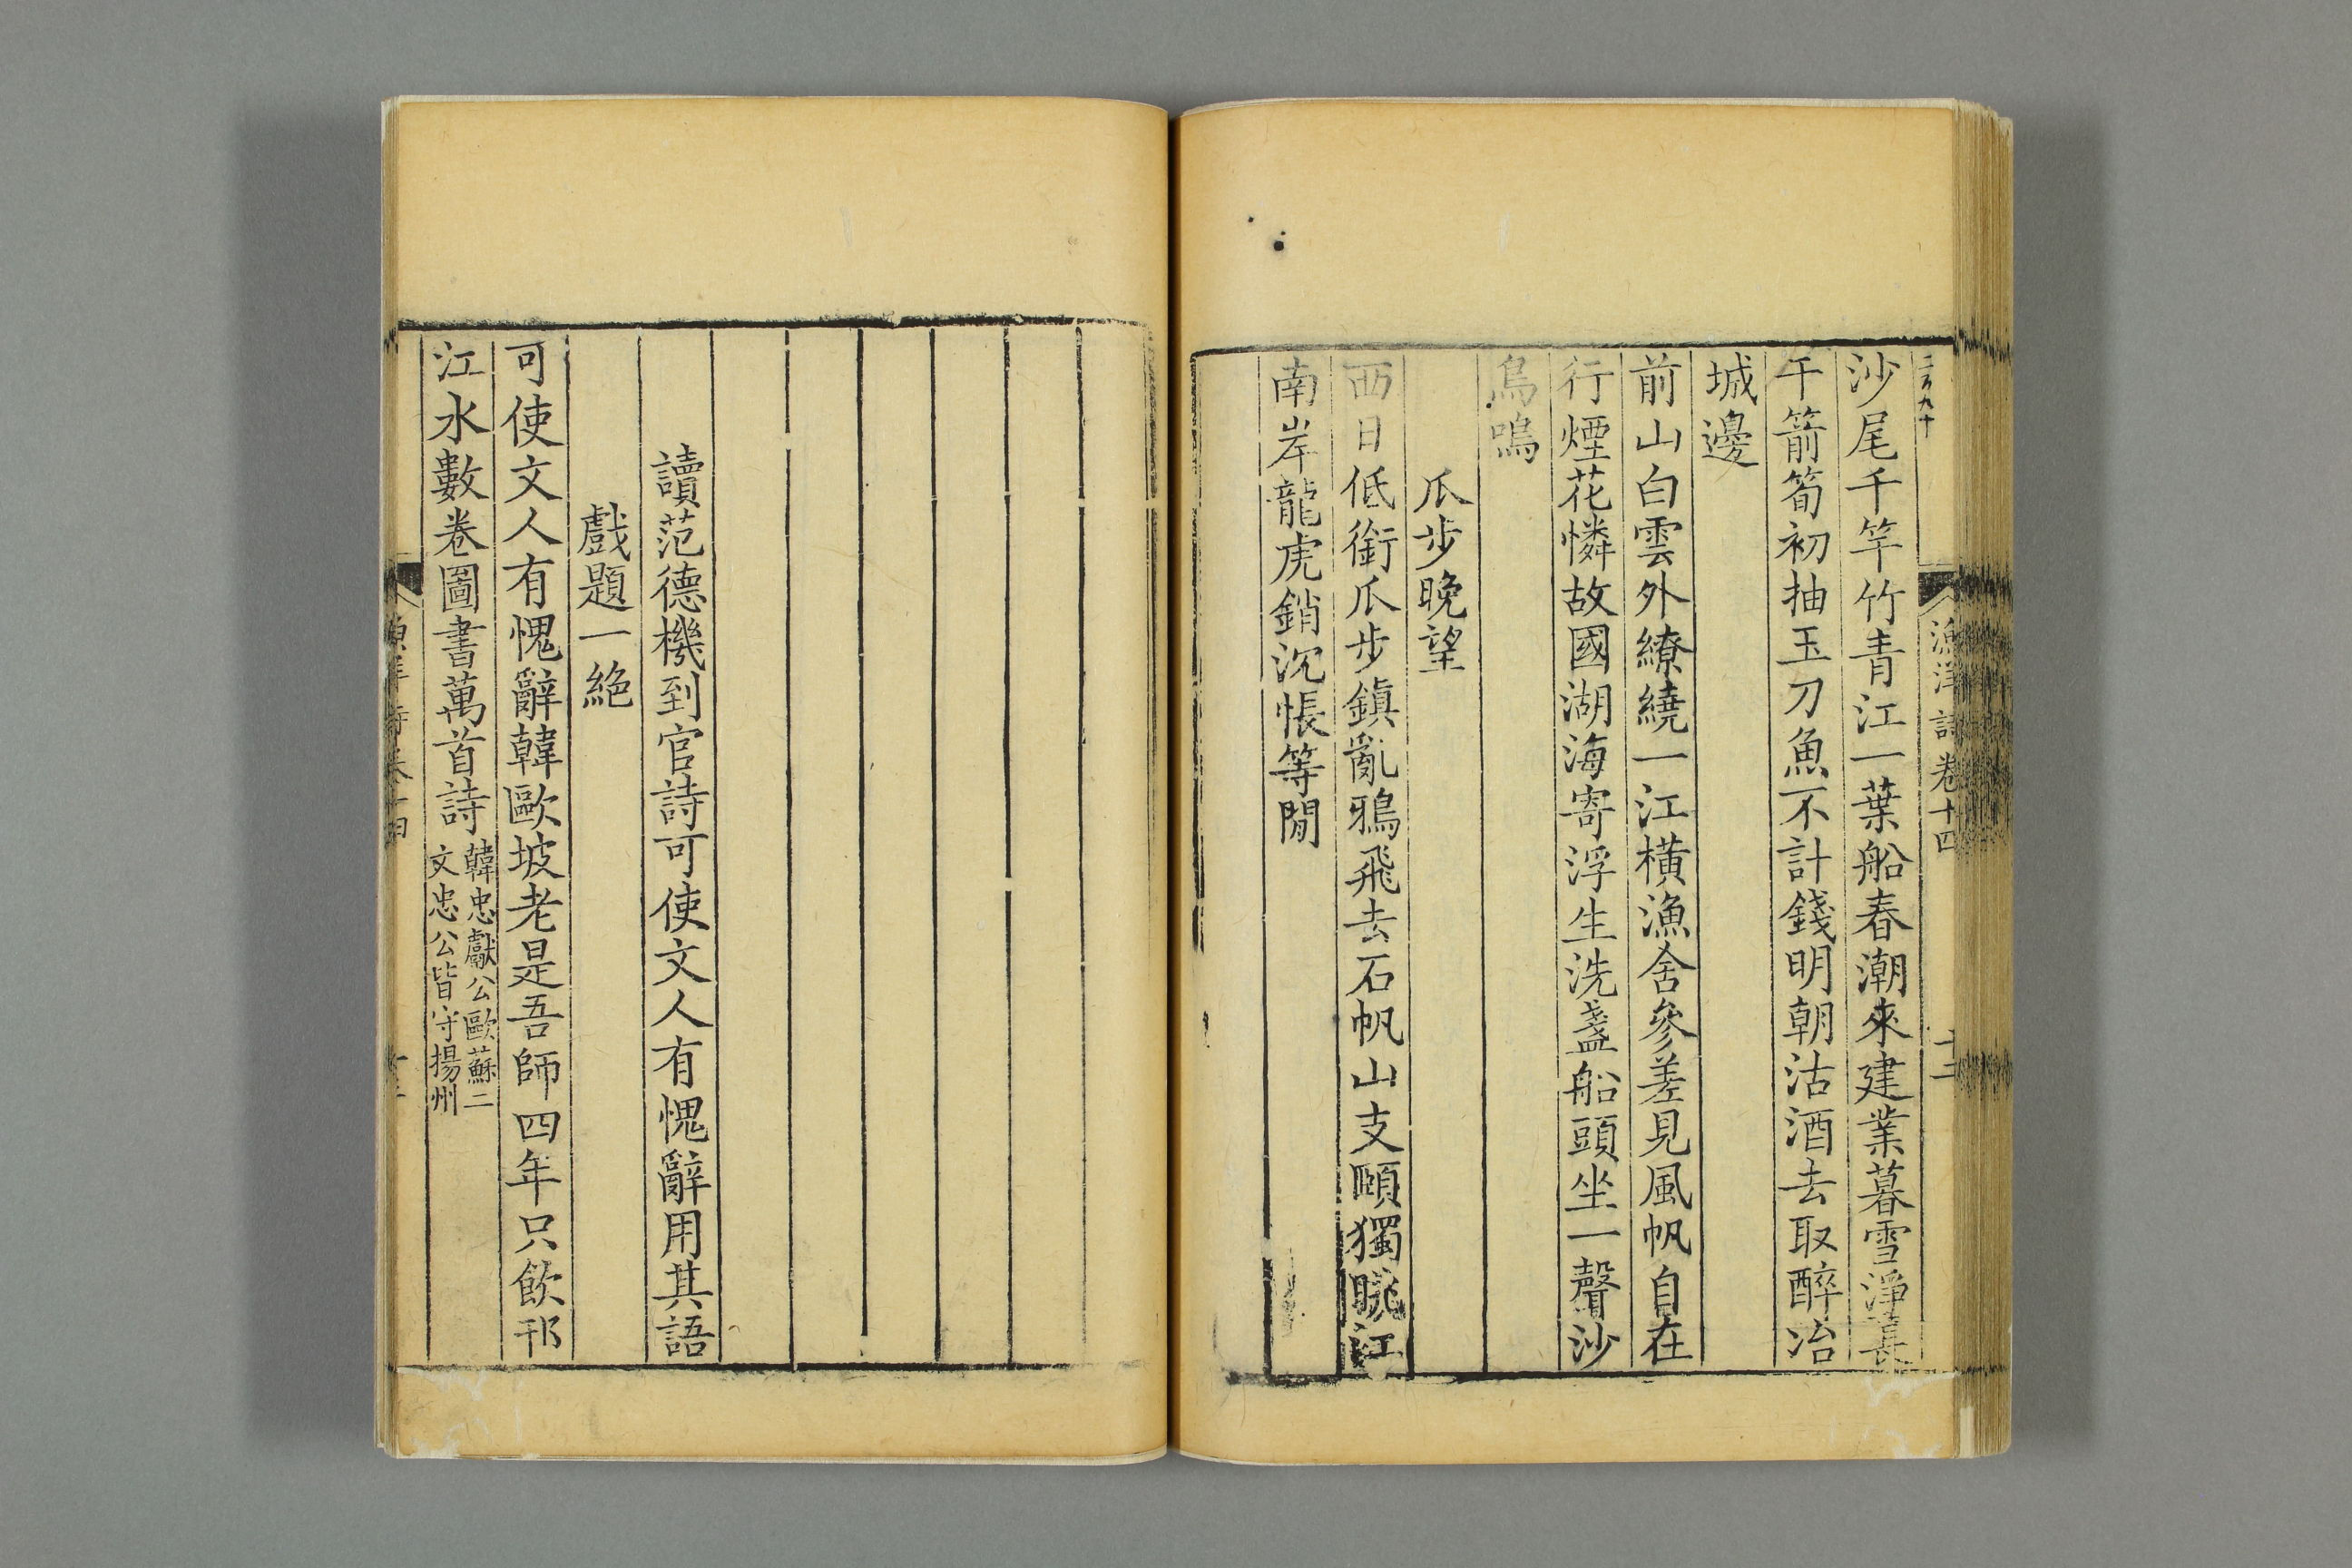 二百九十
漁洋詩卷十四
十二
沙尾千竿竹青江一葉船春潮來建業暮雪淨萇
千箭筍初抽玉刀魚不計錢明朝沽酒去取醉冶
城邊
前山白雲外繚繞一江橫漁舍參差見風帆自在
行煙花憐故國湖海寄浮生洗盞船頭坐一聲沙
鳥鳴
瓜步晚望
西日低銜瓜步鎮亂鴉飛去石帆山支頤獨眺江
南岸龍虎銷沉悵等閒
讀范德機到官詩可使文人有愧辭用其語
戲題一絕
可使文人有愧辭韓歐坡老是吾師四年只飲邗
江水數卷圖書萬首詩韓忠獻公歐蘇二
文忠公皆守揚州
漁洋詩卷十四